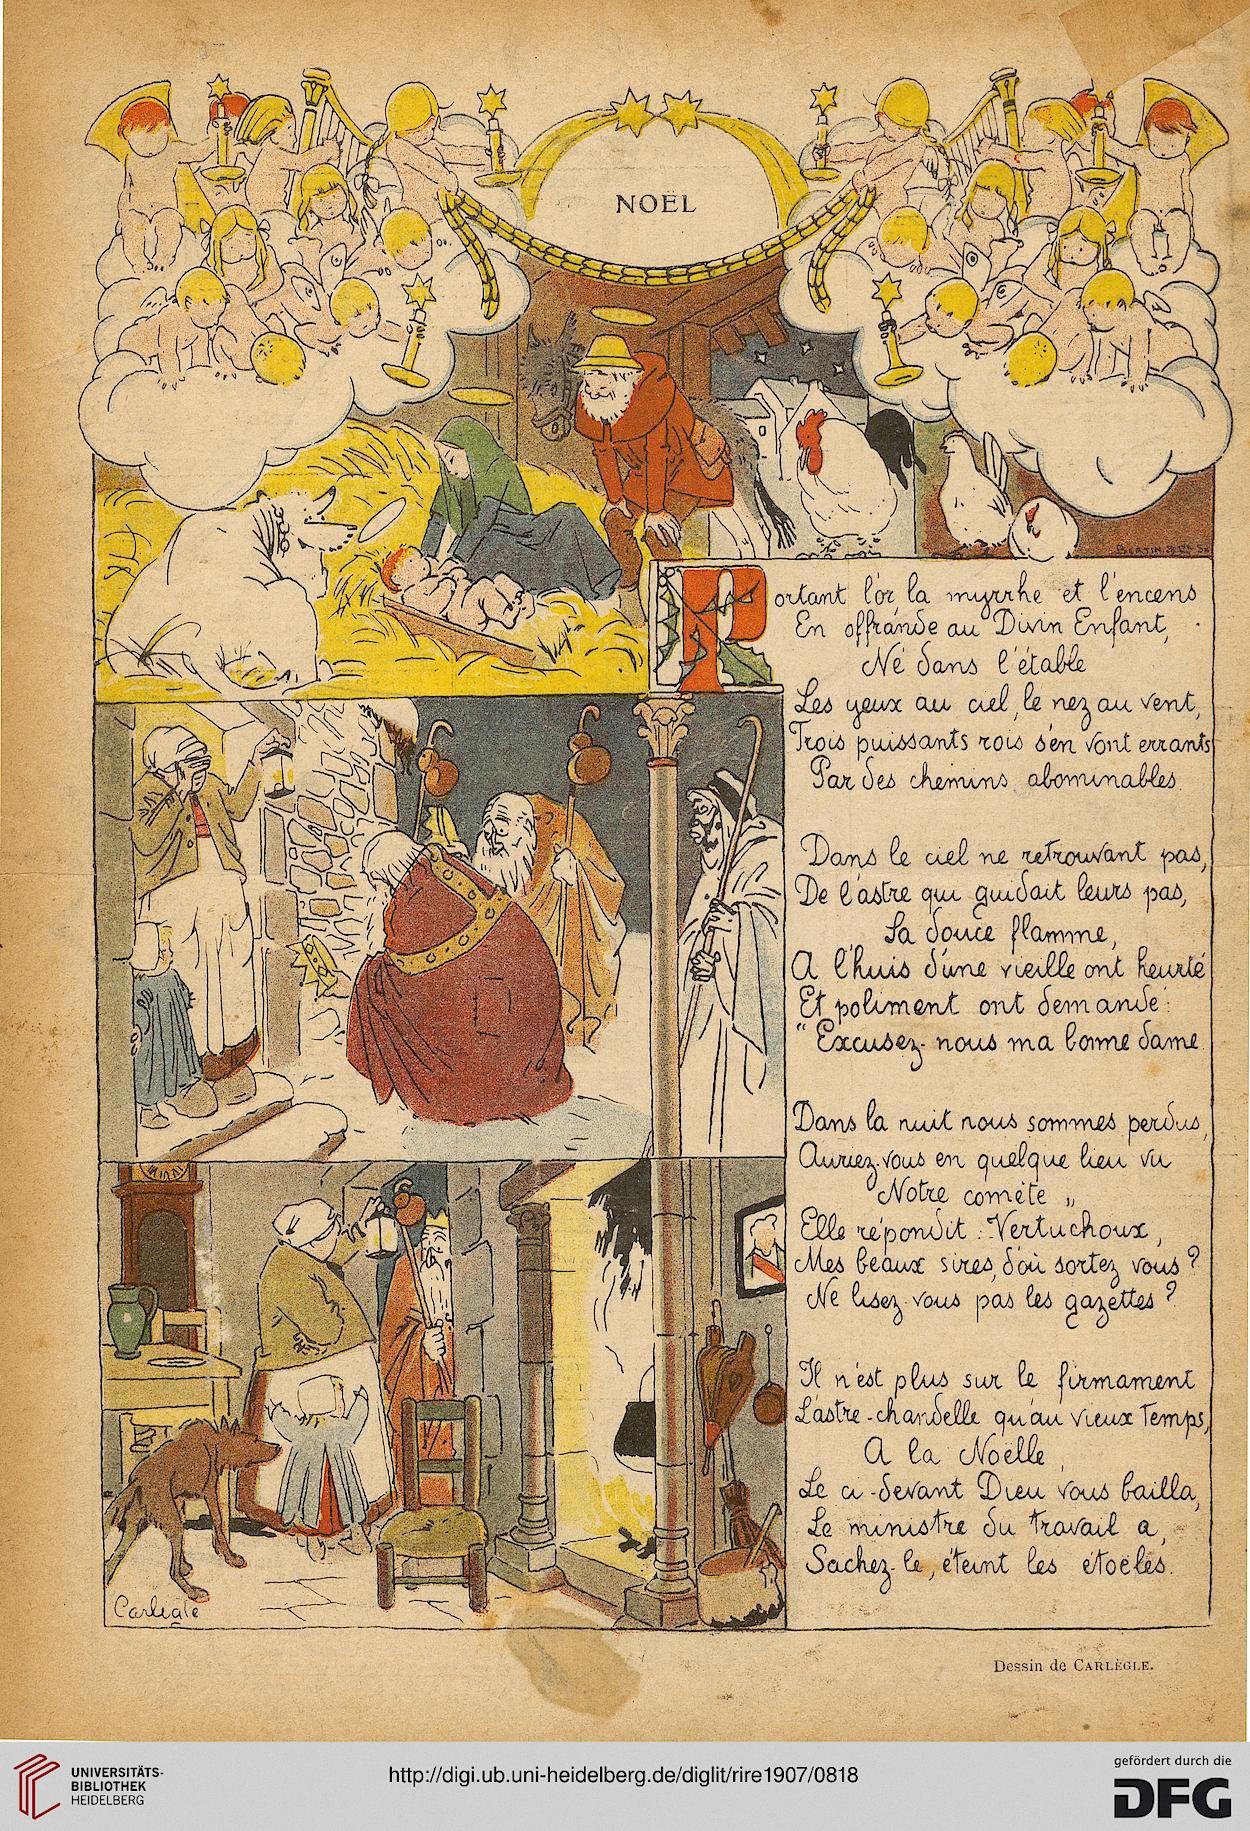 NOËL
BERTIN & Cie Sc
Portant l'or la myrrhe et l'encens
En offrande au Divin Enfant,
Né dans l'étable
Les yeux au ciel, le nez au vent,
Trois puissants rois s'en vont errants
Par des chemins abominables.
Dans le ciel ne retrouvant pas,
De l'astre qui guidait leurs pas,
La douce flamme,
A l'huis d'une vieille ont heurté
Et poliment ont demandé:
"Excusez-nous ma bonne dame
Dans la nuit nous sommes perdus,
Auriez-vous en quelque lieu vu
Notre comète „
Elle répondit : Vertuchoux,
Mes beaux sires, d'où sortez vous ?
Ne lisez-vous pas les gazettes ?
Il n'est plus sur le firmament
L'astre-chandelle qu'au vieux Temps,
A la Noëlle,
Le ci-devant Dieu vous bailla,
Le ministre du travail a,
Sachez-le, éteint les étoëles.
Carlègle
Dessin de CARLÈGLE.
UNIVERSITÄTS-
BIBLIOTHEK
HEIDELBERG
http://digi.ub.uni-heidelberg.de/diglit/rire1907/0818
gefördert durch die
DFG